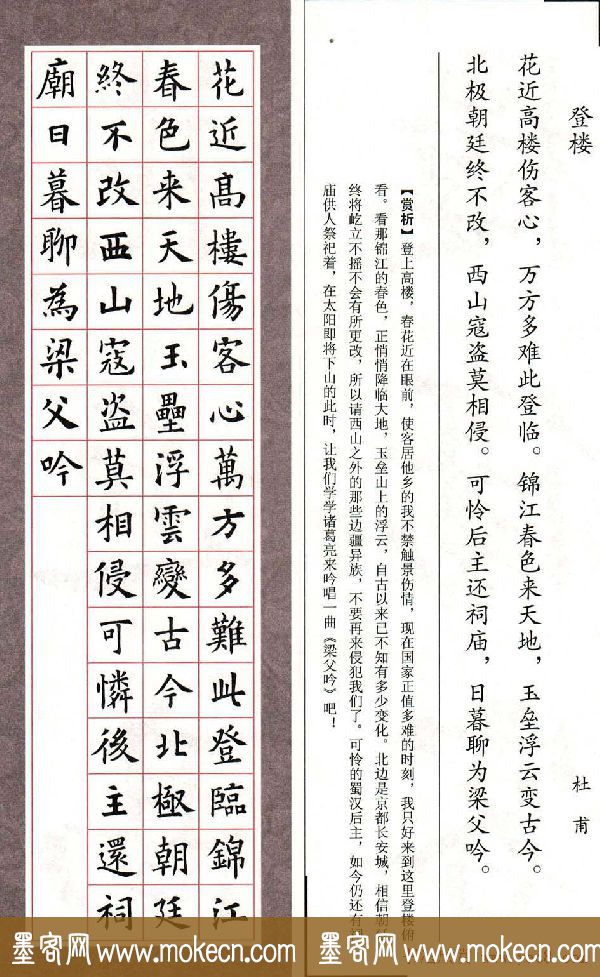 登楼
杜甫
花近高楼伤客心，万方多难此登临。锦江春色来天地，玉垒浮云变古今。
北极朝廷终不改，西山寇盗莫相侵。可怜后主还祠庙，日暮聊为梁父吟。
【赏析】登上高楼，春花近在眼前，使客居他乡的我不禁触景伤情，现在国家正值多难的时刻，我只好来到这里登楼俯
看。看那锦江的春色，正悄悄降临大地，玉垒山上的浮云，自古以来已不知有多少变化。北边是京都长安城，相信朝
终将屹立不摇不会有所更改，所以请西山之外的那些边疆异族，不要再来侵犯我们了。可怜的蜀汉后主，如今仍还有
庙供人祭祀着，在太阳即将下山的此时，让我们学学诸葛亮来吟唱一曲《梁父吟》吧！
花近髙樓傷客心萬方多難此登臨錦江
春色来天地玉壘浮雲變古今北極朝廷
終不改西山寇盗莫相侵可憐後主還祠
廟日暮聊為梁父吟
墨客网 www.mokecn.com 墨客网 www.mokecn.com